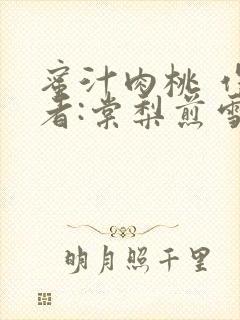 蜜汁肉桃
者:棠梨煎雪
明月照千里